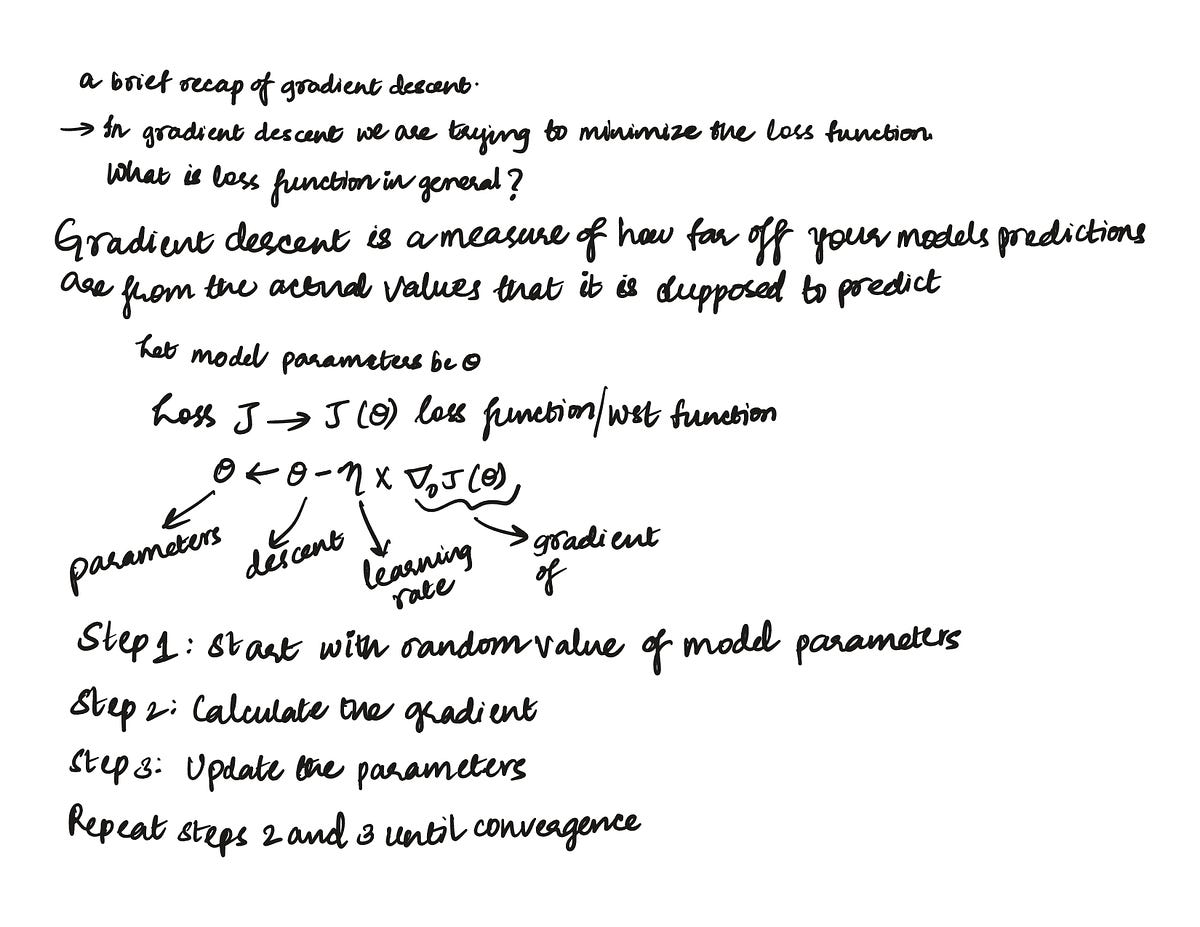 a brief recap of gradient descent.
→ In gradient descent we are trying to minimize the loss function.
What is loss function in general?
Gradient descent is a measure of how far off your models predictions
are from the actual values that it is supposed to predict
Let model parameters be θ
Loss J → J(θ) loss function/cost function
θ ← θ - η x ∇θ J(θ)
parameters
descent
learning
rate
gradient
of
Step 1: Start with random value of model parameters
Step 2: Calculate the gradient
Step 3: Update the parameters
Repeat steps 2 and 3 until convergence